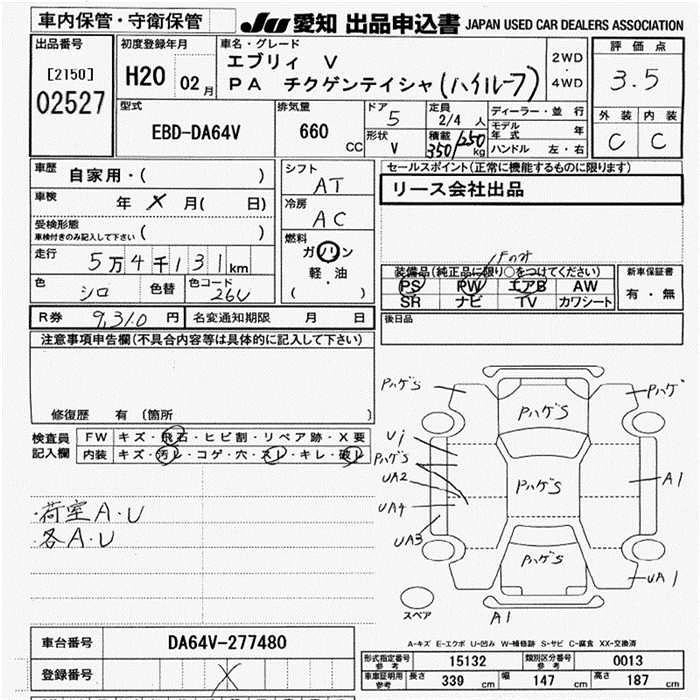 車内保管・守衛保管
JU 愛知 出品申込書 JAPAN USED CAR DEALERS ASSOCIATION
出品番号
[2150]
02527
初度登録年月
H20 02月
車名・グレード
エブリィ V
PA チクゲンテイシャ(ハイルーフ)
2WD
・
4WD
評価点
3.5
外装 内装
C C
型式
EBD-DA64V
排気量
660 CC
ドア
5
形状
V
定員
2/4 人
積載
350/250 kg
ディーラー・並行
モデル年式 年
ハンドル 左・右
車歴 自家用・( )
車検 年 X 月( 日)
受検形態
車検付きのみ記入して下さい ( )
走行 5万4千131km
色 シロ 色替 色コード 26U
シフト
AT
冷房
AC
燃料
ガソリン
軽・油
( )
セールスポイント(正常に機能するものに限ります)
リース会社出品
装備品(純正品に限り○をつけてください)
PS PW エアB AW
SR ナビ TV カワシート
新車保証書
有・無
R券 9,310 円 名変通知期限 月 日
後日品
注意事項申告欄(不具合内容等は具体的に記入して下さい)
修復歴 有 〔箇所 〕
検査員記入欄
FW キズ・飛石・ヒビ割・リペア跡・X要
内装 キズ・汚レ・コゲ・穴・スレ・キレ・破レ
・荷室A・U
・各A・U
PハゲS
Pハゲ
PハゲS
Ui
PハゲS
UA2
UA4
UA3
PハゲS
A1
PハゲS
UA1
スペア
A1
A-キズ E-エクボ U-凹み W-補修跡 S-サビ C-腐食 XX-交換済
車台番号 DA64V-277480
登録番号 X
形式指定番号 参考 15132 類別区分番号 参考 0013
車庫証明用 参考 長さ 339 cm 幅 147 cm 高さ 187 cm